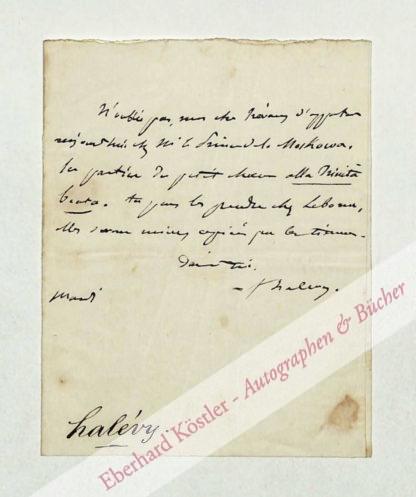 N'oublie pas, mon cher d'apporter
aujourd'hui chez Mr le Prince de la Moskowa,
les parties du petit chœur alla Trinità
beata. tu peux les prendre chez Leborne,
elles seront moins copiées que les tiennes.
fhalevy.
mardi
halévy.
Eberhard Köstler - Autographen & Bücher